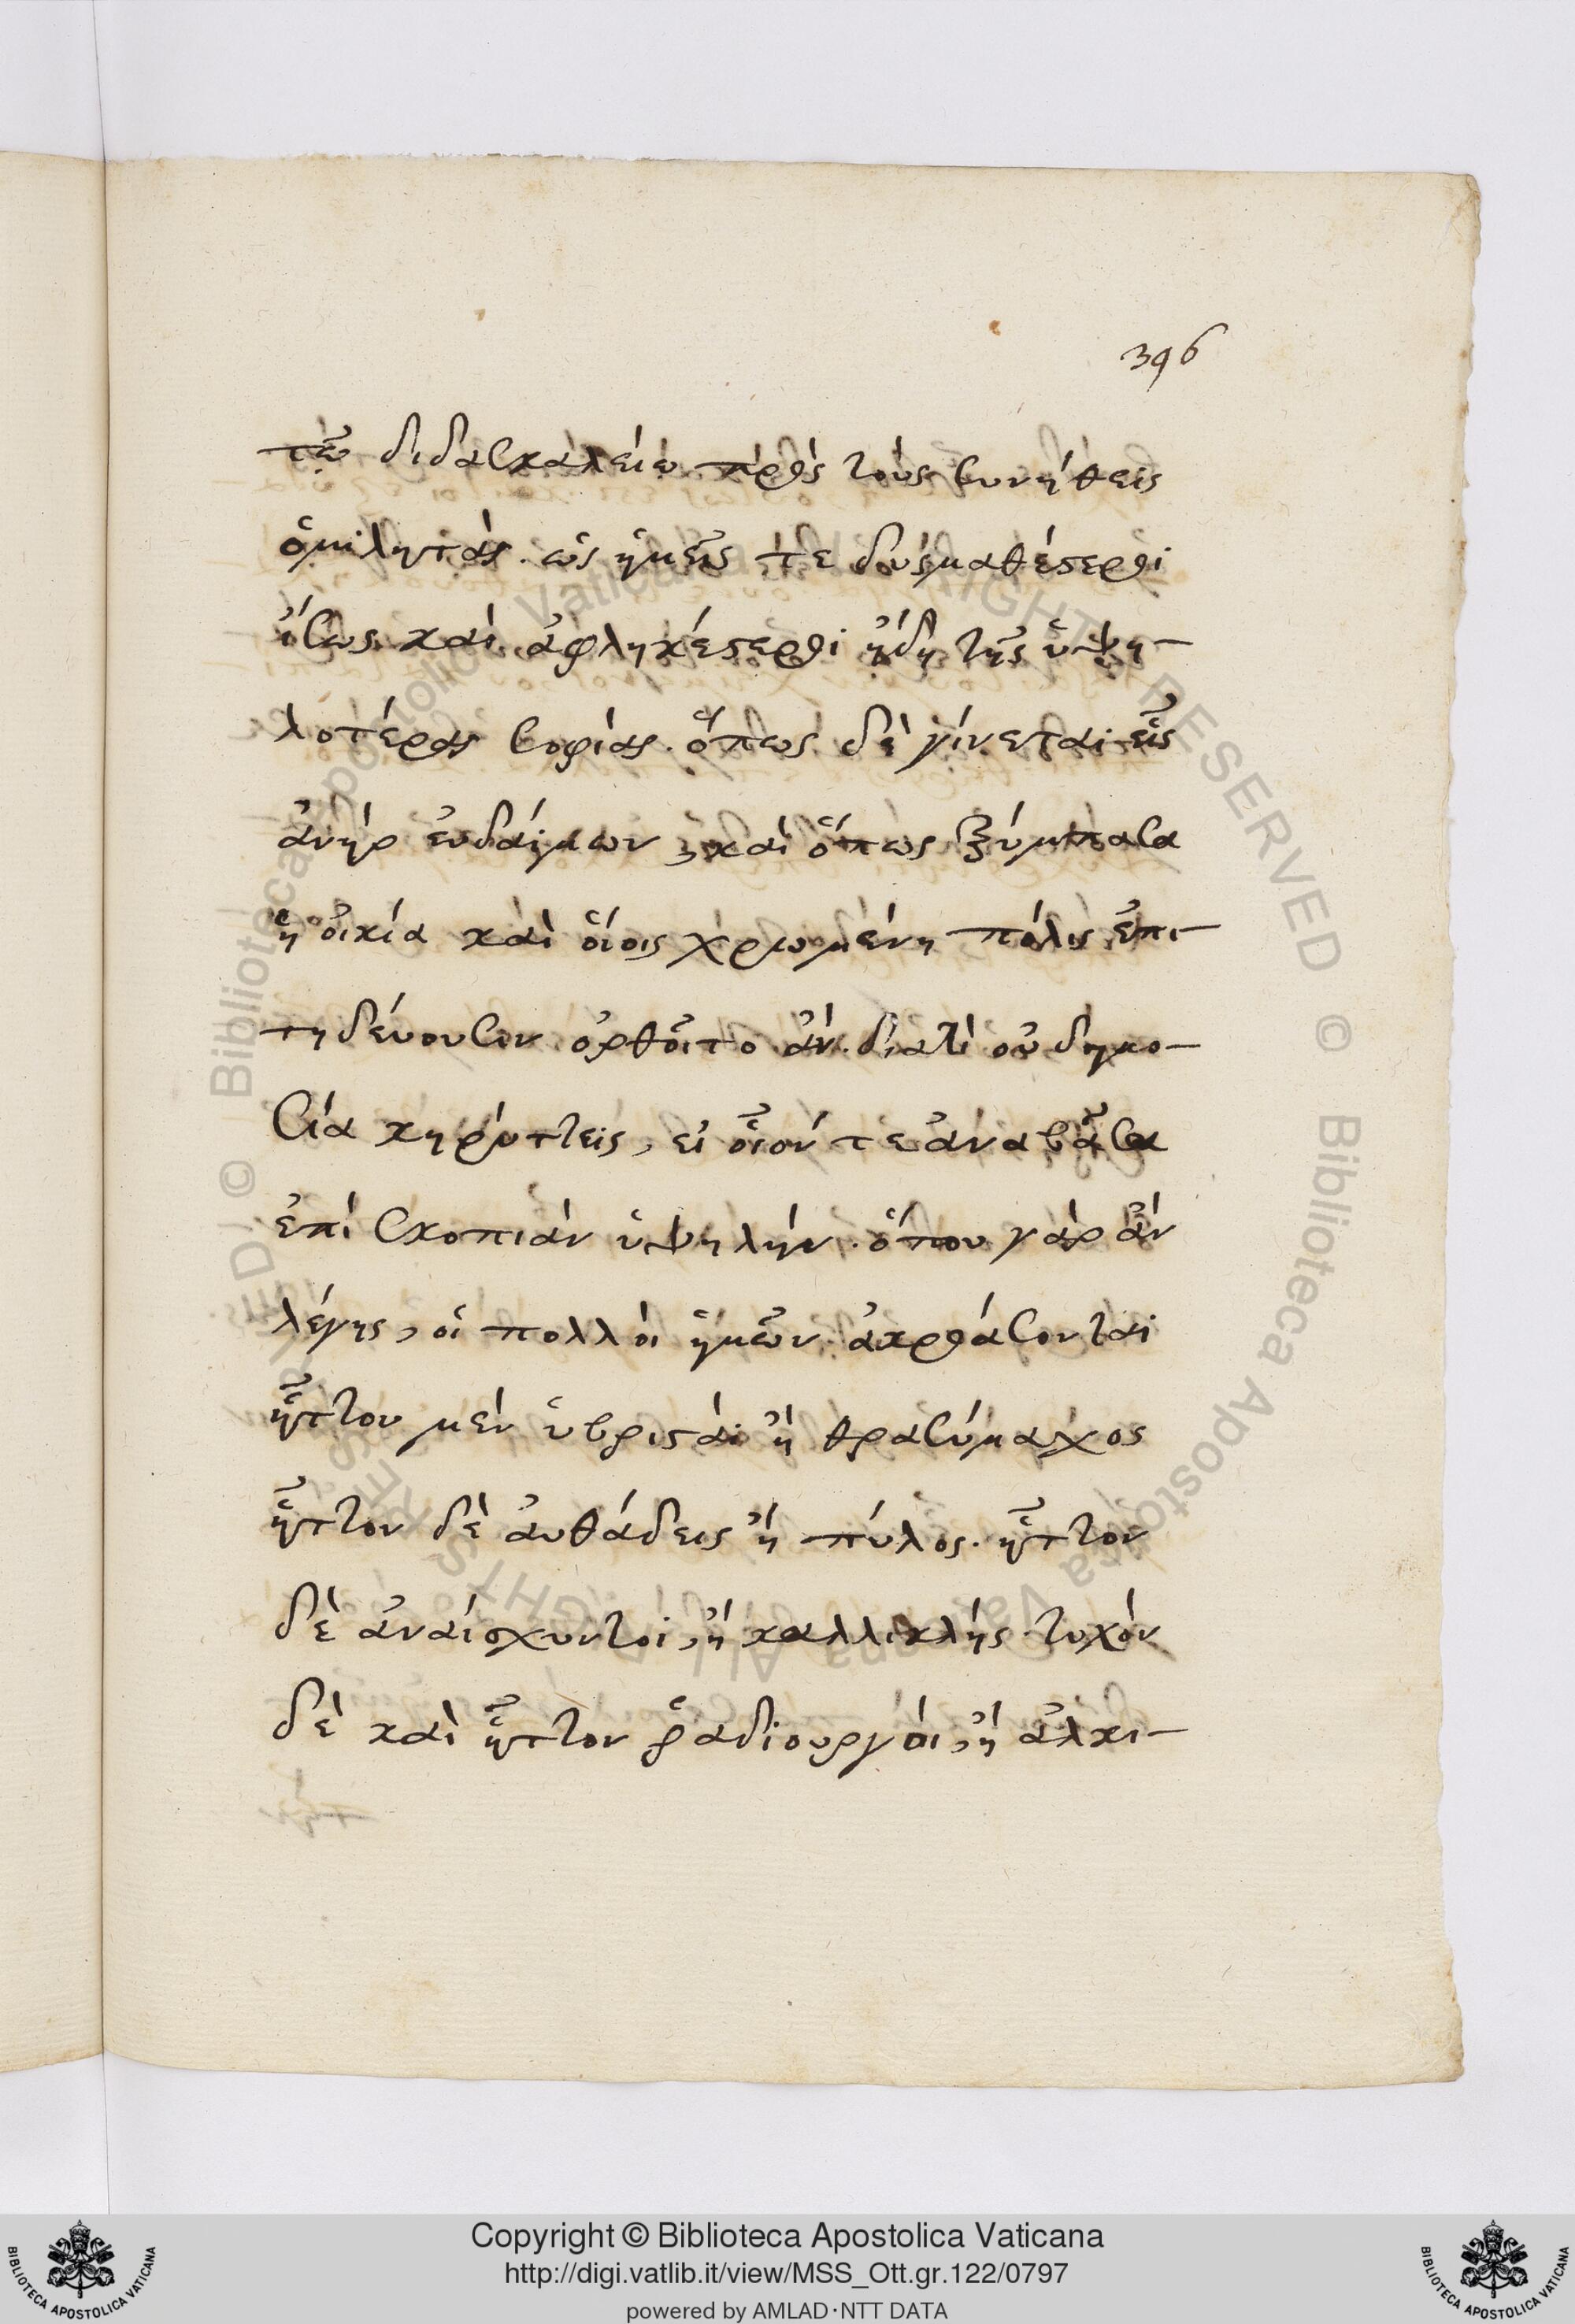 396
τῷ διδασκαλείῳ πρὸς τοὺς συνήθεις
ὁμιλητάς. ὡς ἡμεῖς τε δυσμαθέστεροι
ἴσως καὶ ἀφληκέστεροι ἤδη τῆς ὑψη-
λοτέρας σοφίας. ὅπως δὲ γίνεται εἷς
ἀνὴρ εὐδαίμων, καὶ ὅπως ξύμπασα
ἡ οἰκία καὶ οἵοις χρωμένη πόλις ἐπι-
τηδεύουσιν ὀρθοῖτο ἄν. διατί οὐ δημο-
σία κηρύττεις, εἰ οἷόν τε ἀναβᾶσα
ἐπὶ σκοπιὰν ὑψηλήν. ὅπου γὰρ ἂν
λέγης, οἱ πολλοὶ ἡμῶν ἀκροάσονται
ἧττον μὲν ὑβρισταὶ ἢ θρασύμαχος
ἧττον δὲ αὐθάδεις ἢ πύλος. ἧττον
δὲ ἀναίσχυντοι, ἢ καλλικλής. τυχὸν
δὲ καὶ ἧττον ῥαδιουργοὶ, ἢ ἀλκι-
Copyright © Biblioteca Apostolica Vaticana
http://digi.vatlib.it/view/MSS_Ott.gr.122/0797
powered by AMLAD·NTT DATA
BIBLIOTECA APOSTOLICA VATICANA
BIBLIOTECA APOSTOLICA VATICANA